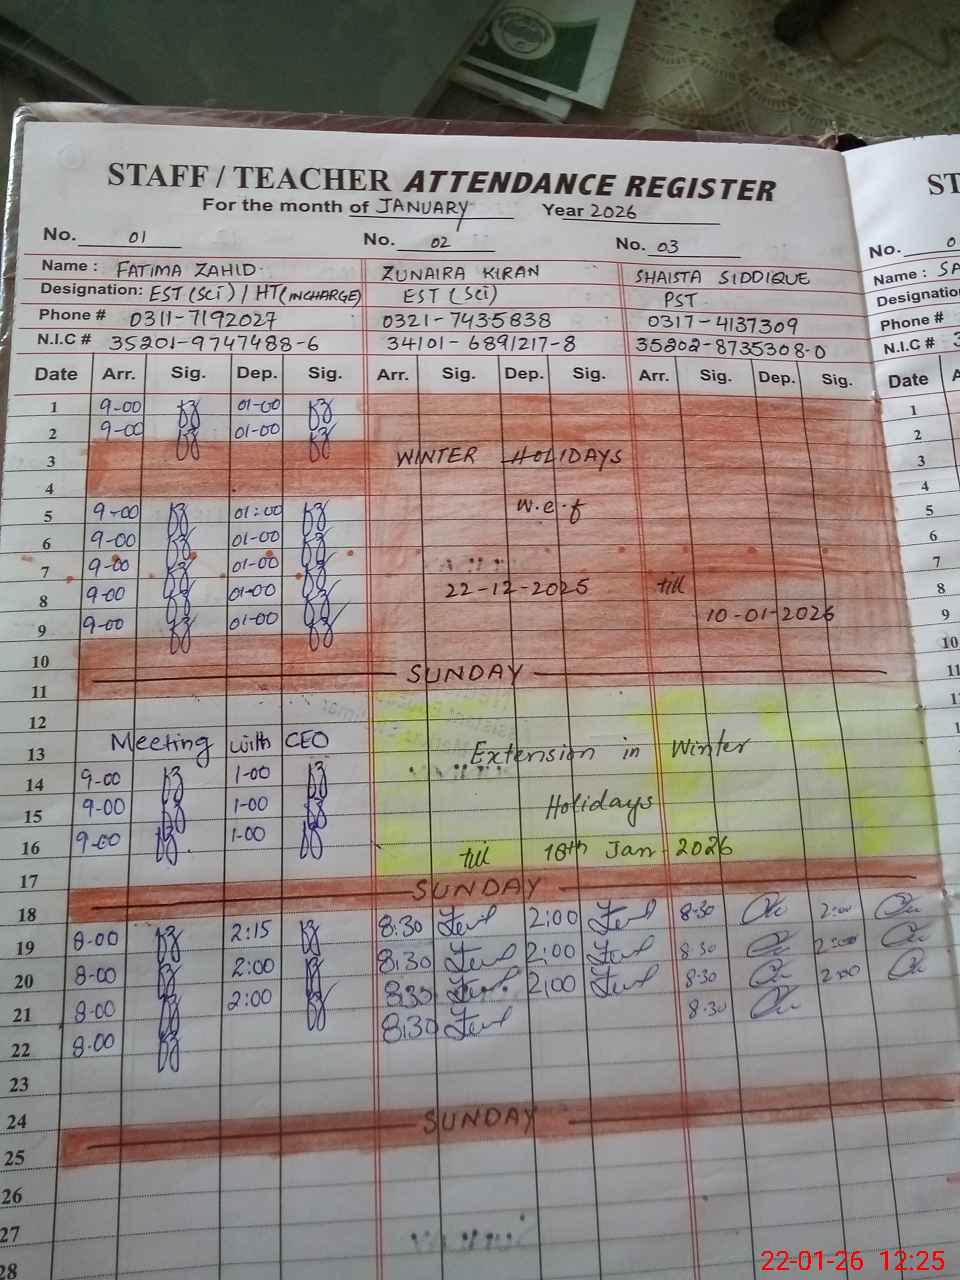 STAFF / TEACHER ATTENDANCE REGISTER
For the month of JANUARY Year 2026
No. 01 No. 02 No. 03
Name : FATIMA ZAHID ZUNAIRA KIRAN SHAISTA SIDDIQUE
Designation: EST (SCi) / HT (INCHARGE) EST (Sci) PST
Phone # 0311-7192027 0321-7435838 0317-4137309
N.I.C # 35201-9747488-6 34101-6891217-8 35202-8735308-0
Date Arr. Sig. Dep. Sig. Arr. Sig. Dep. Sig. Arr. Sig. Dep. Sig.
1 9-00 01-00
2 9-00 01-00
3 WINTER HOLIDAYS
4
5 9-00 01:00 w.e.f
6 9-00 01-00
7 9-00 01-00
8 9-00 01-00 22-12-2025 till
9 9-00 01-00 10-01-2026
10
11 SUNDAY
12
13 Meeting with CEO Extension in Winter
14 9-00 1-00
15 9-00 1-00 Holidays
16 9-00 1-00 till 18th Jan-2026
17
18 SUNDAY
19 8-00 2:15 8:30 2:00 8-30 2:00
20 8-00 2:00 8:30 2:00 8-30 2:00
21 8-00 2:00 8:30 2:00 8-30 2:00
22 8-00 8:30 8-30
23
24
25 SUNDAY
26
27
28
ST
No. 0
Name : SA
Designatio
Phone #
N.I.C # 3
Date A
1
2
3
4
5
6
7
8
9
10
11
22-01-26 12:25